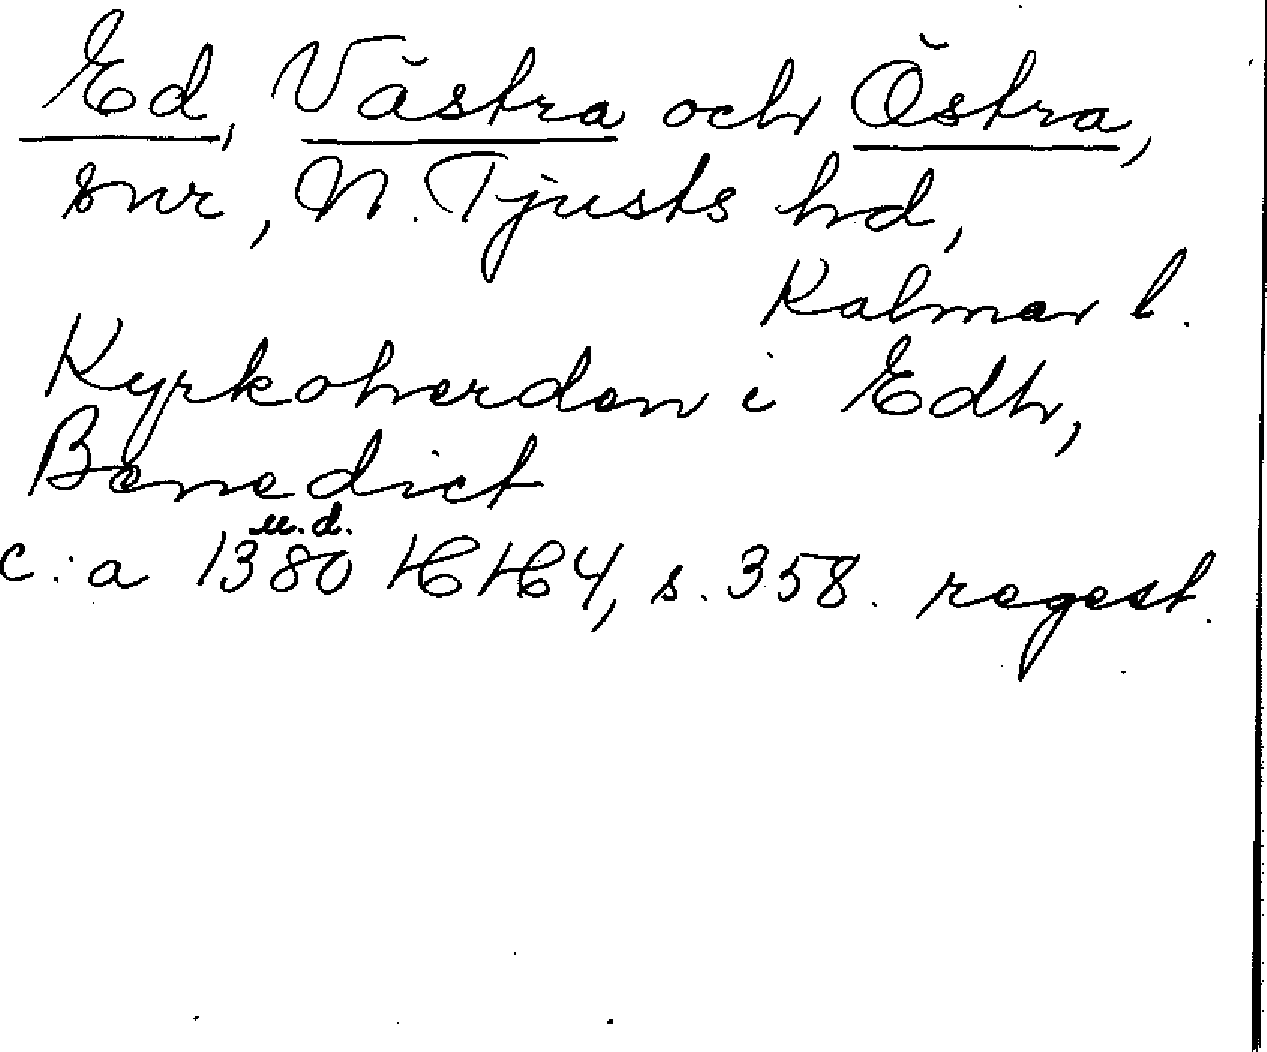 Ed, Västra och Östra,
snr, N. Tjusts hd,
Kalmar l.
Kyrkoherden i Edh,
Benedict
u.d.
c:a 1380 HH 4, s. 358. regest.